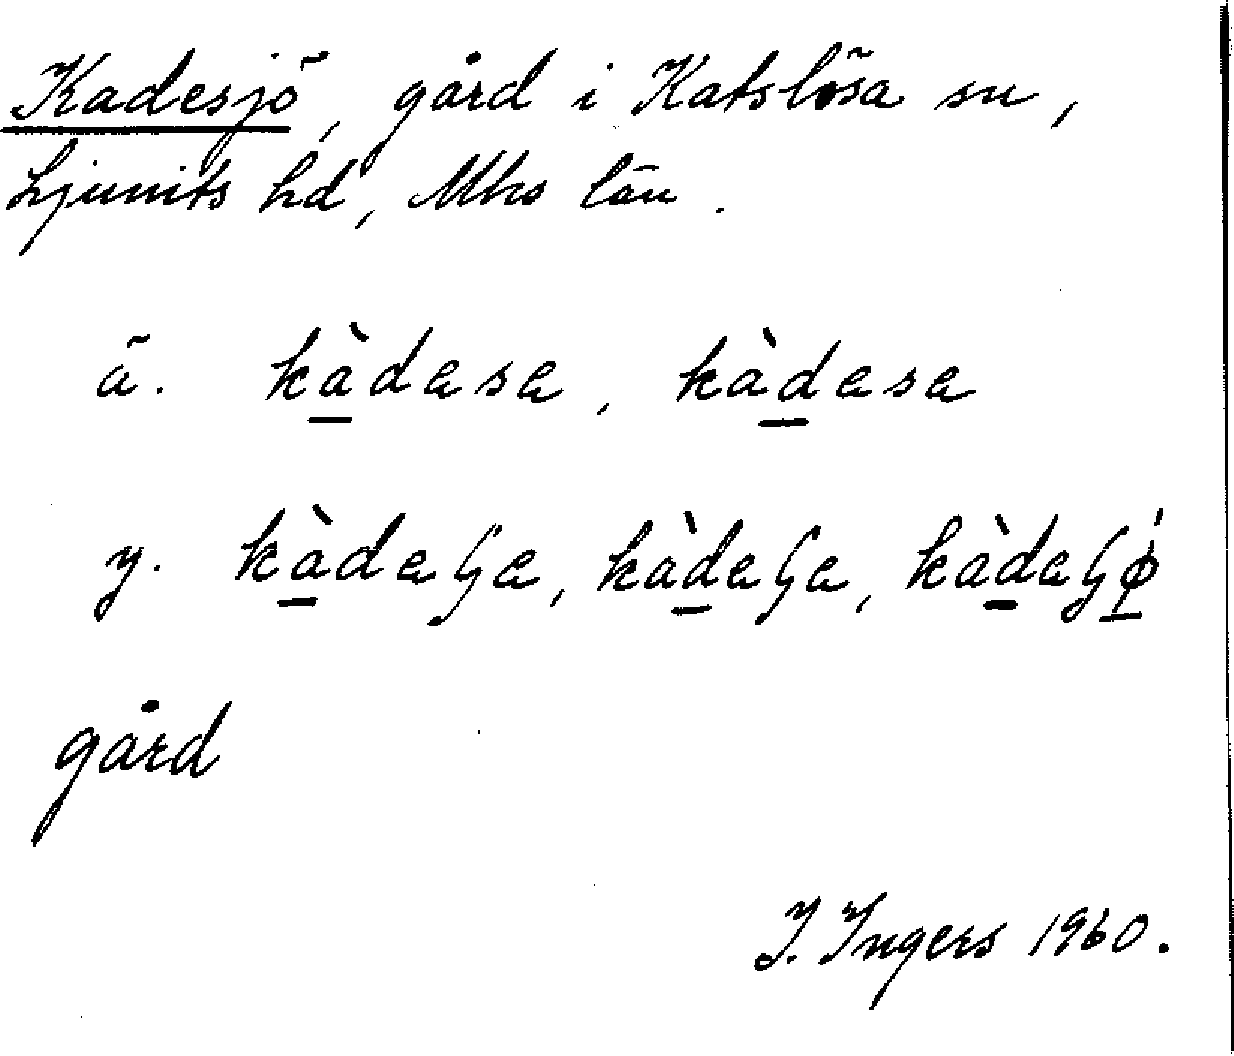 Kadesjö, gård i Katslösa sn,
Ljunits hd, Mhs län.
ä. kàdəsə, kàdəsə
y. kàdəʃə, kàdəʃə, kàdəʃǿ
gård
I. Ingers 1960.